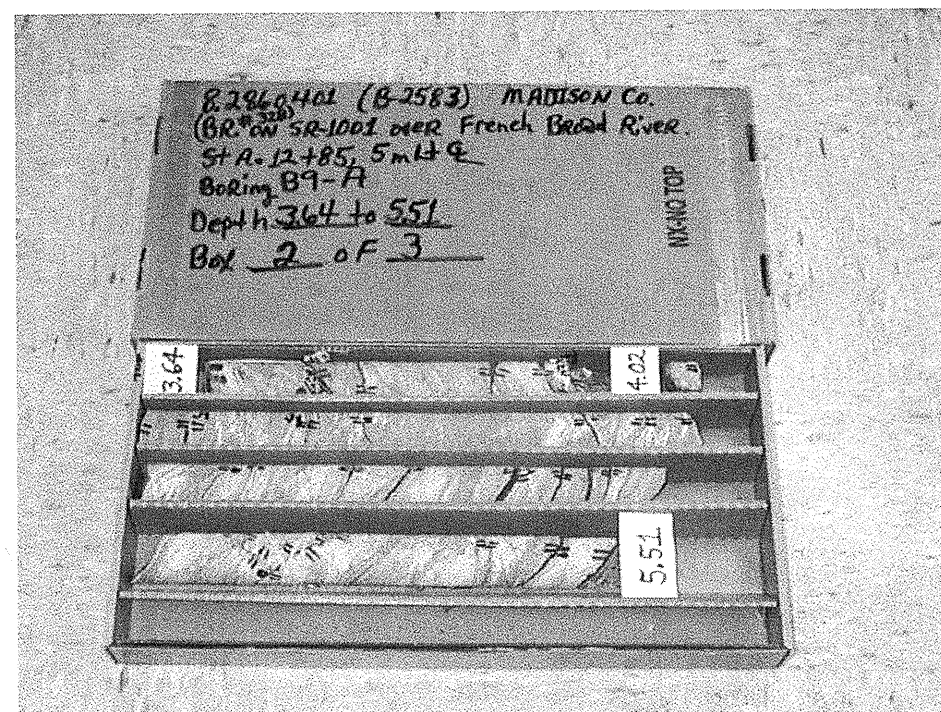 8.2860401 (B-2583) MADISON Co.
(BR.# 328) ON SR-1001 over French Broad River.
StA. 12+85, 5m Lt ℄
Boring B9-A
Depth 3.64 to 5.51
Box 2 of 3
NX-NQ TOP
3.64
4.02
5.51